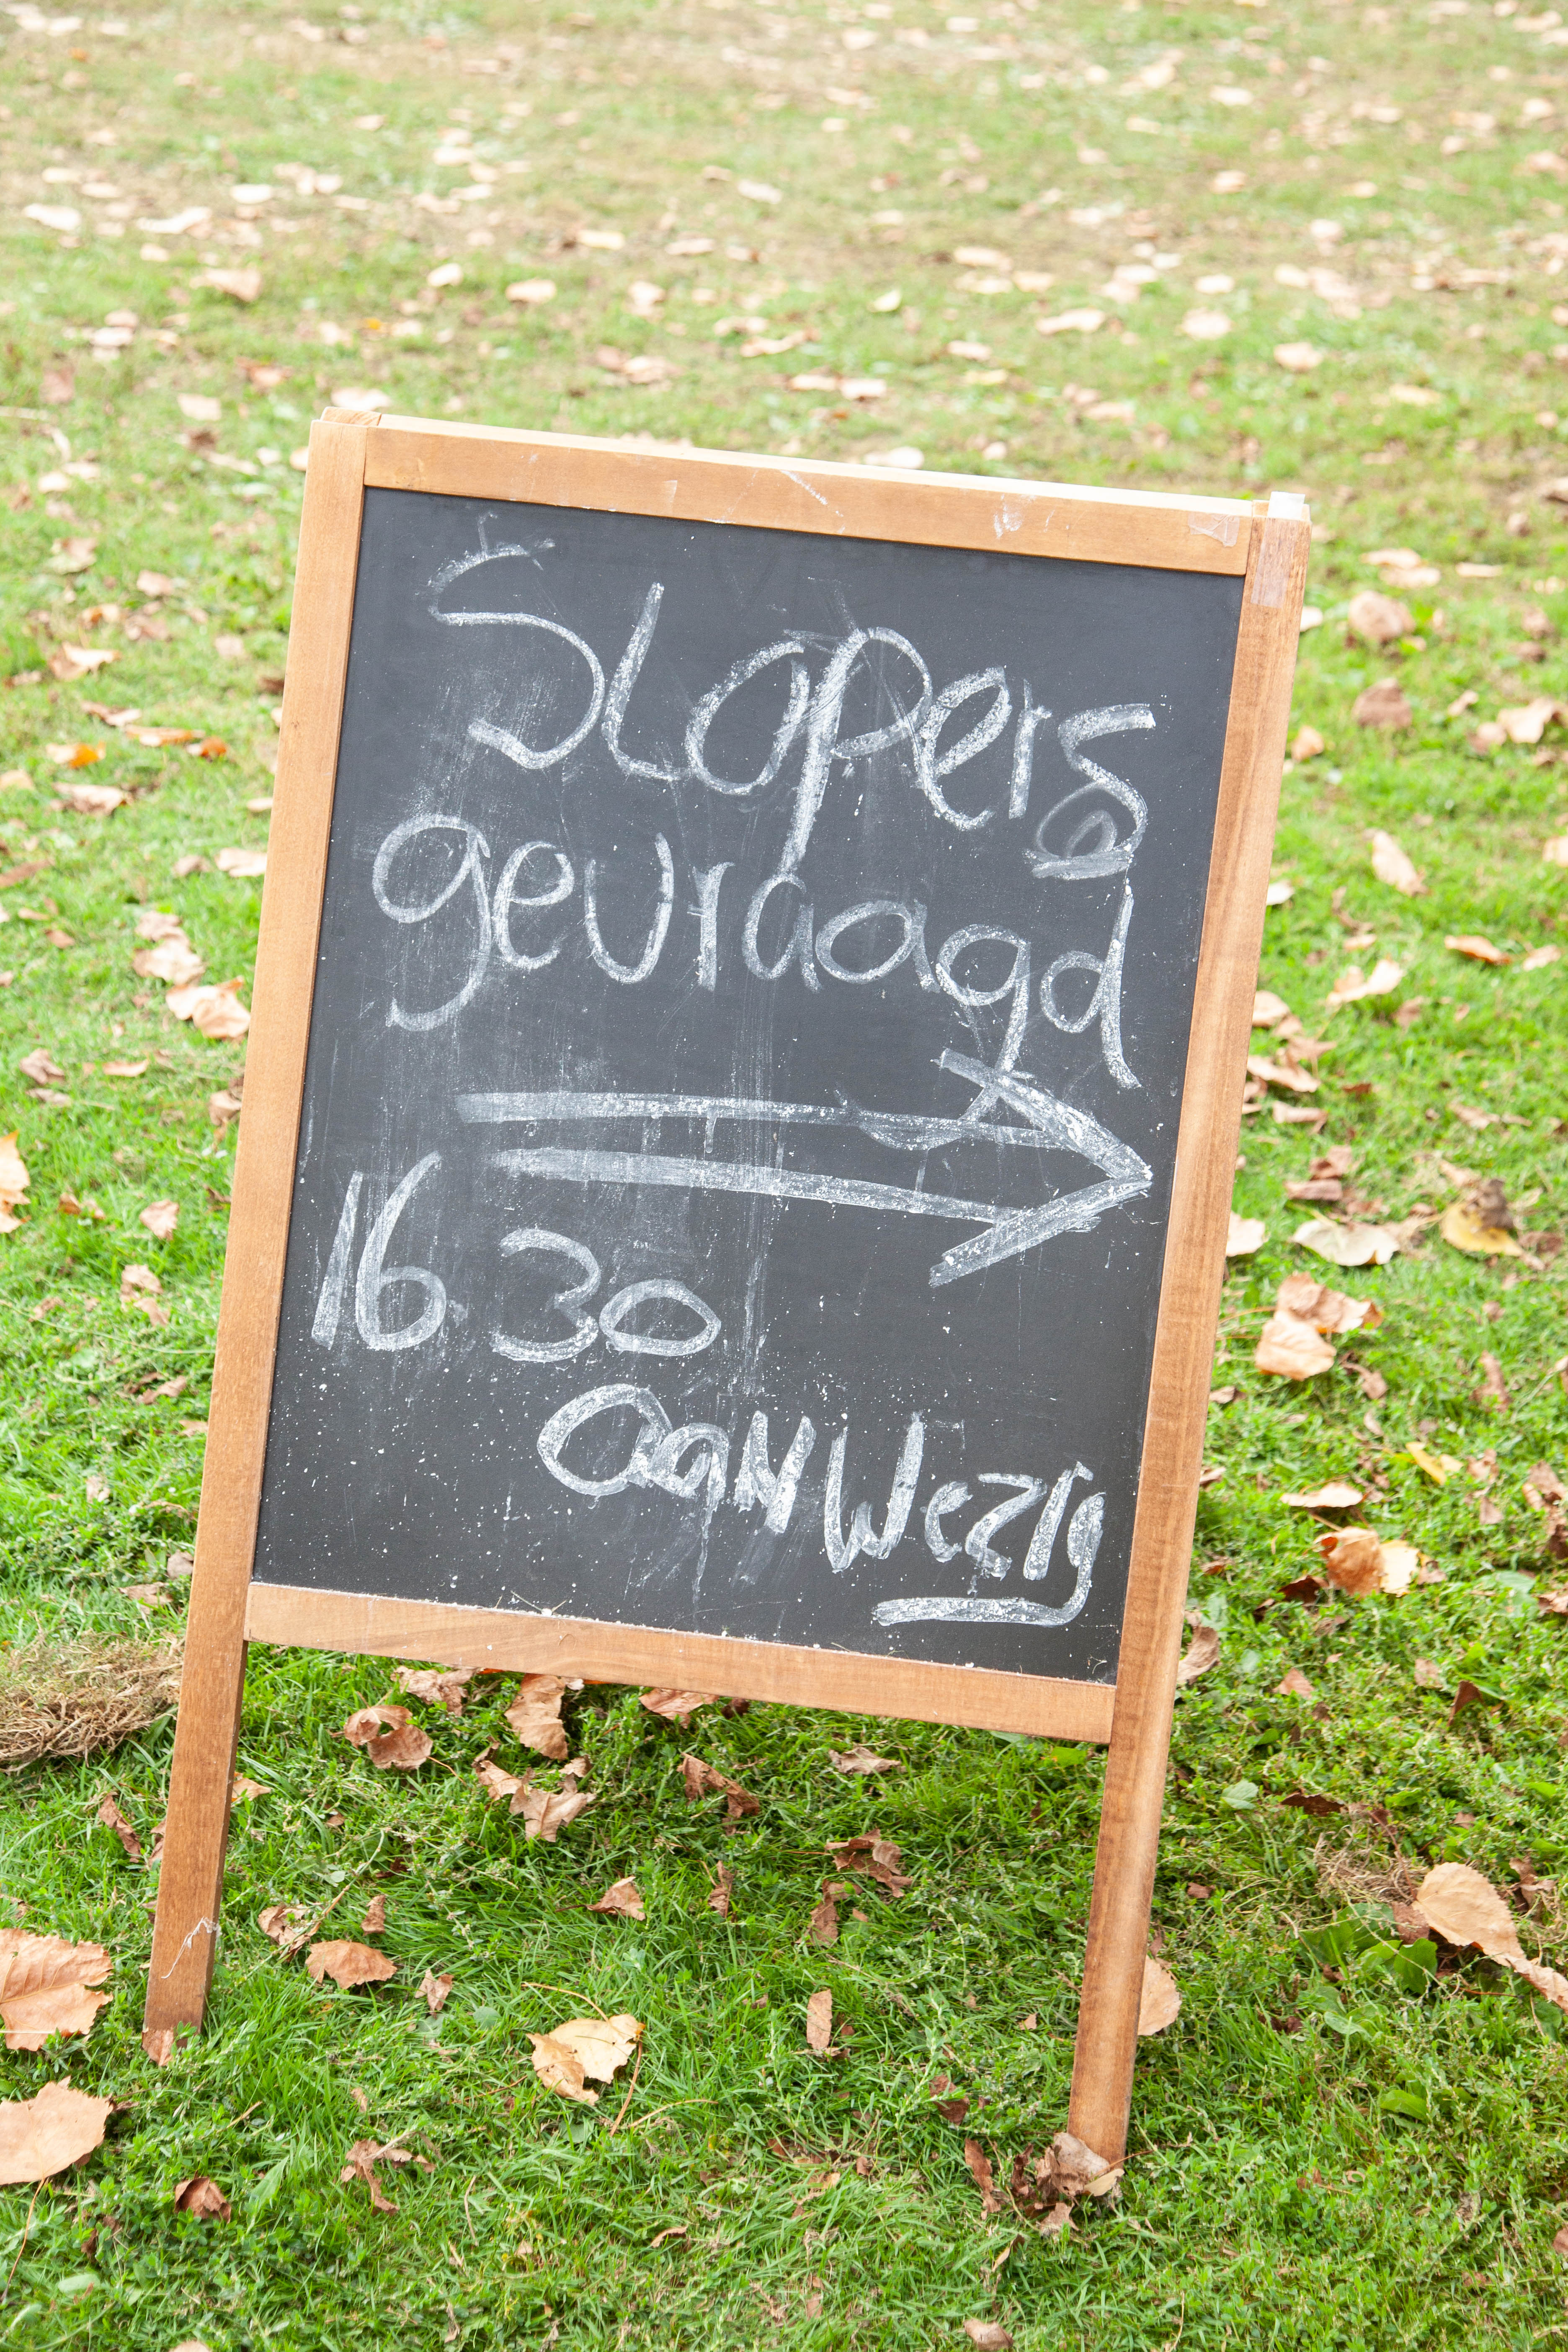 Slopers
gevraagd
16.30
aanwezig